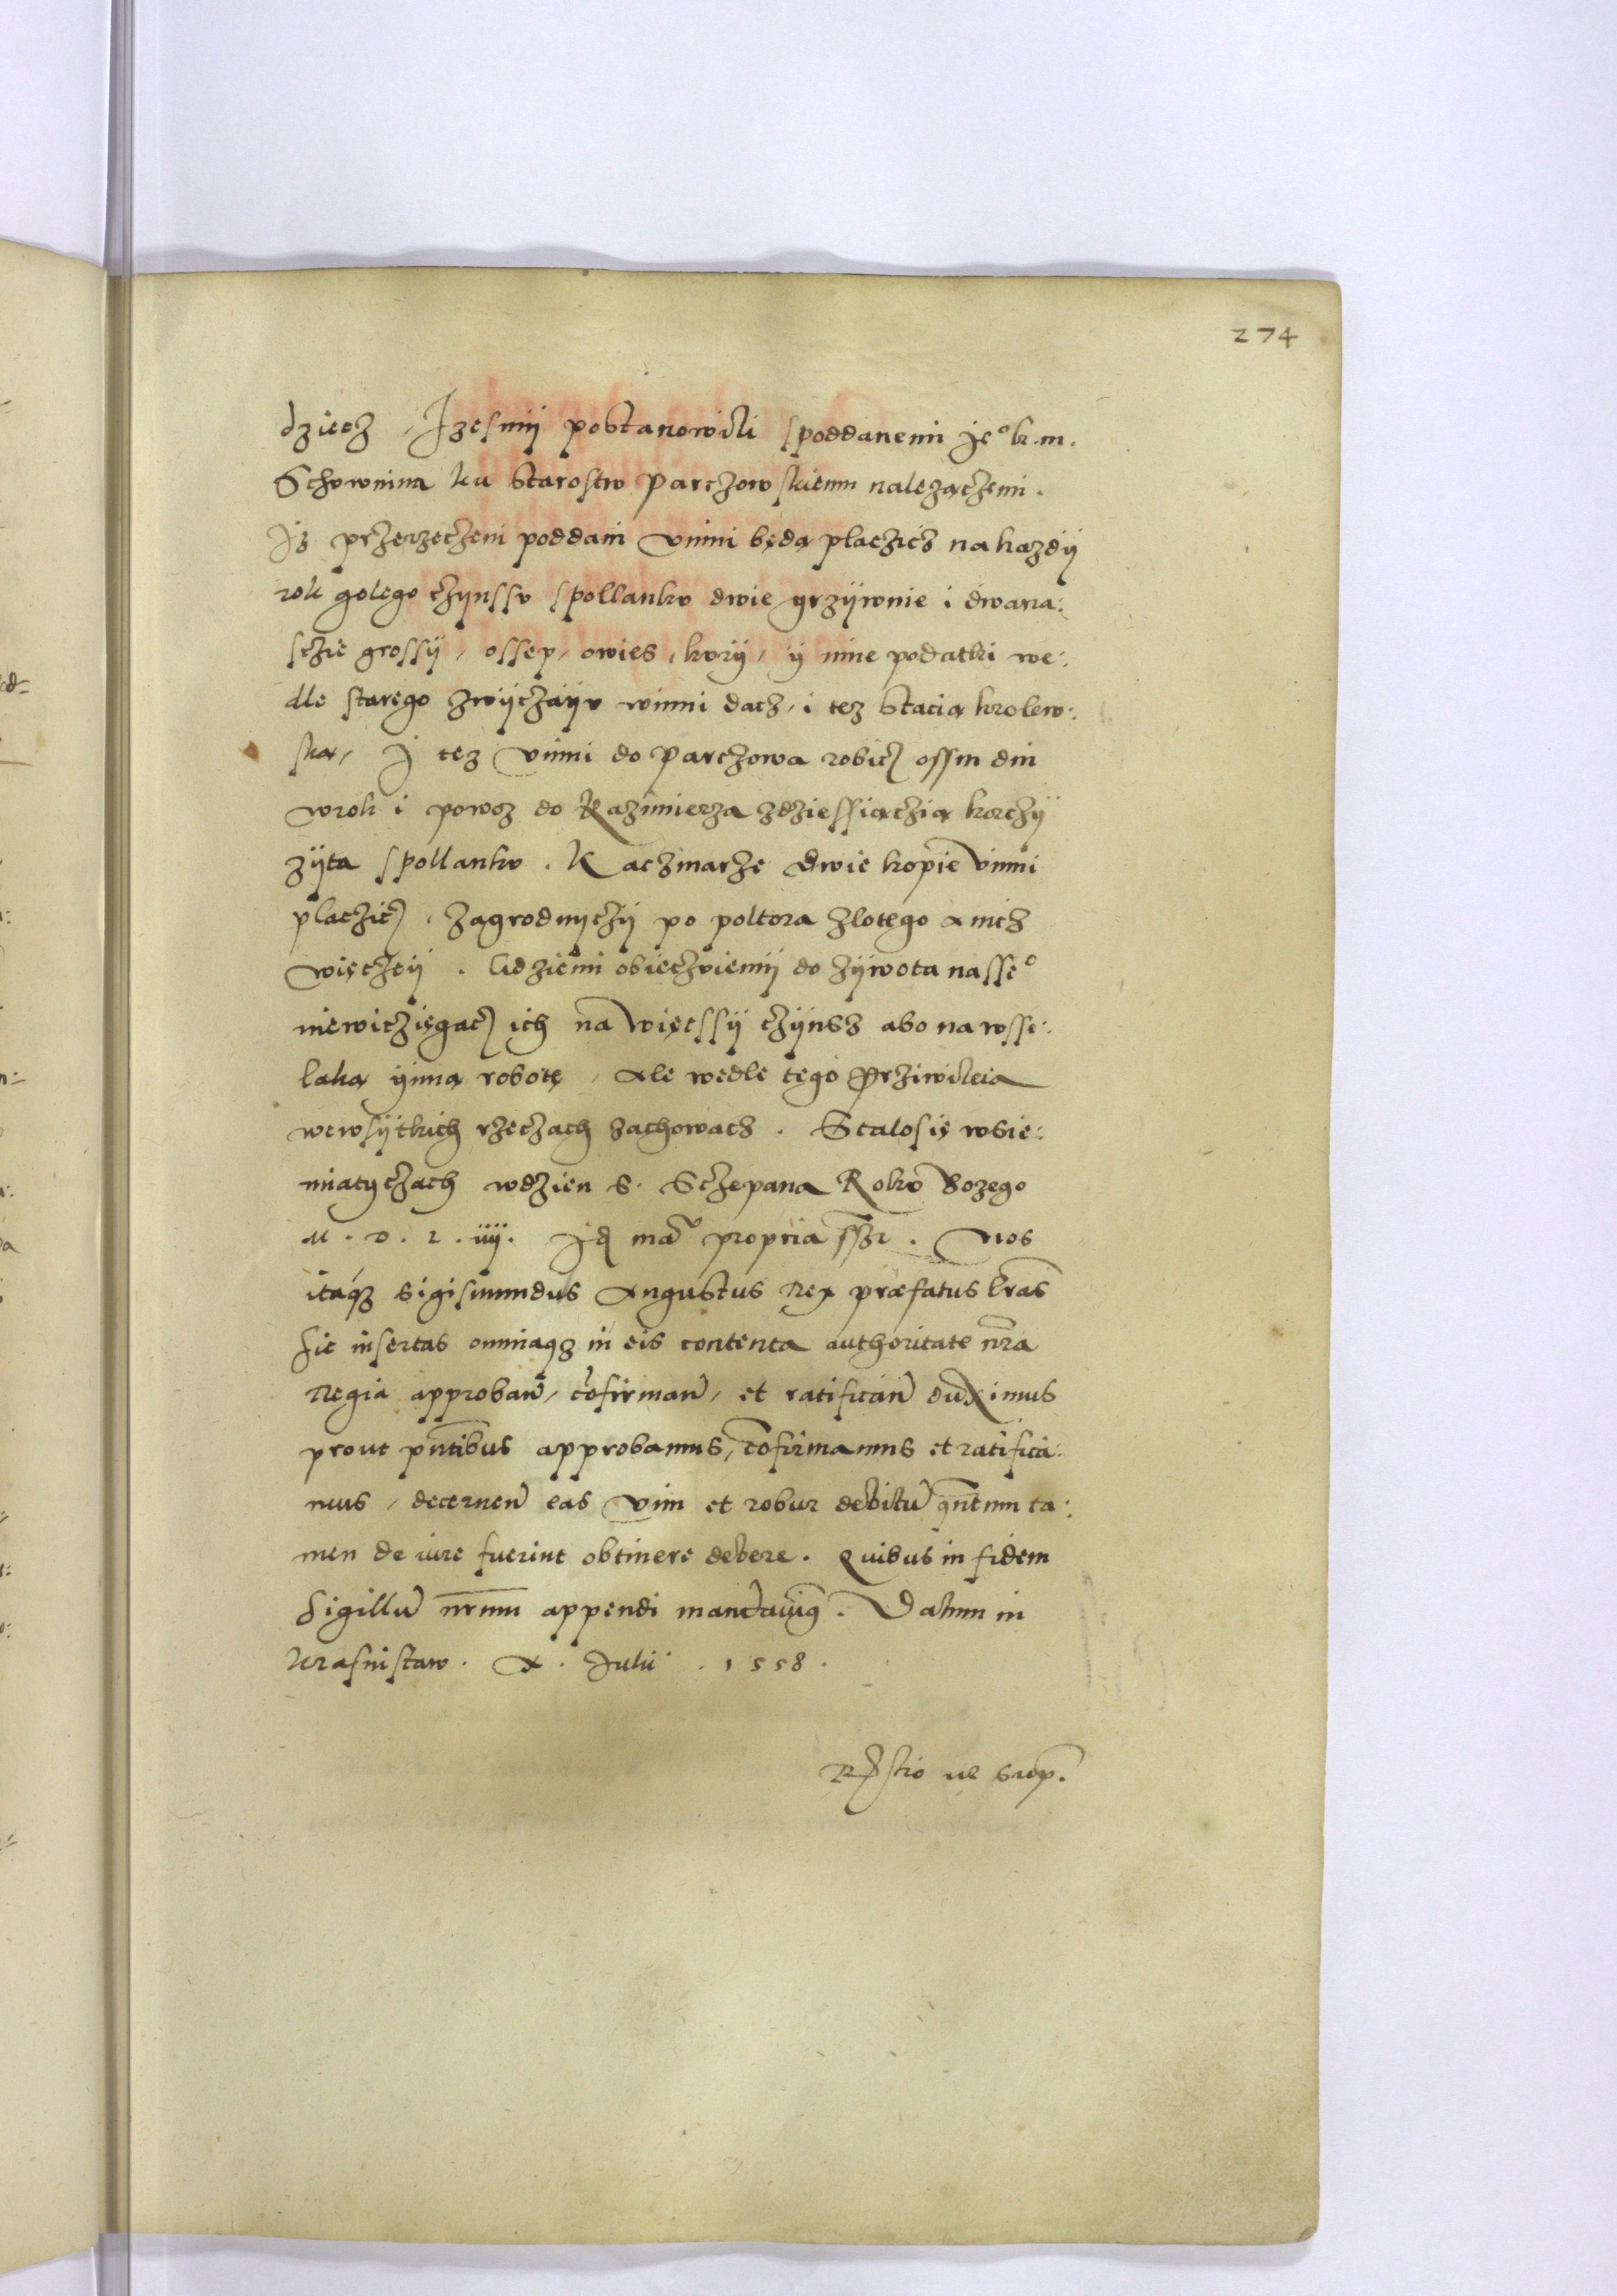 274
dziecz, Izesmÿ postanowili spoddanemi Je° k. m.
Schownina ku starostw parczowskiemu nalezączemi.
Iz przerzeczeni poddani vinni będą placzicz na kazdÿ
rok golego czÿnssv spollankv dwie grzÿwnie i dwana:
sczie grossÿ, ossep, owies, kurÿ, ÿ inne podatki we:
dle starego zwÿczaÿv winni dacz, i tez stacią krolew:
ską, I tez vinni do parczowa robicz ossm dni
wrok i powoz do Kazimierza zdziessiączią korczÿ
zÿta spollankv. Kaczmarze dwie kopie vinni
placzicz, zagrodnyczÿ po poltora zlotego a nicz
więczeÿ. Gdziemi obieczviemÿ do zÿwota nasse°
niewiczięgacz ich na więtssÿ czÿnsz abo na wsse:
laką ÿnną robotę, ale wedle tego prziwileia
wewsÿtkich rzeczach zachowacz. Stalosię wsie:
miatyczach wdzien S. Sczepana Rokv Bozego
M. D. L. iiij. Idem manu propria sszt. Nos
itaque Sigismundus Augustus Rex præfatus lras
sic insertas omniaque in eis contenta authoritate nrã
Regia approbañ, cõfirmañ, et ratificañ duximus
prout pntibus approbamus, cõfirmamus et ratifica:
mus, decerneñ eas vim et robur debitũ qntum ta:
men de iure fuerint obtinere debere. Quibus in fidem
Sigillũ nrum appendi mandavimus. Datum in
Krasnistaw. X. Julii. 1558.
Rstio ut sup.